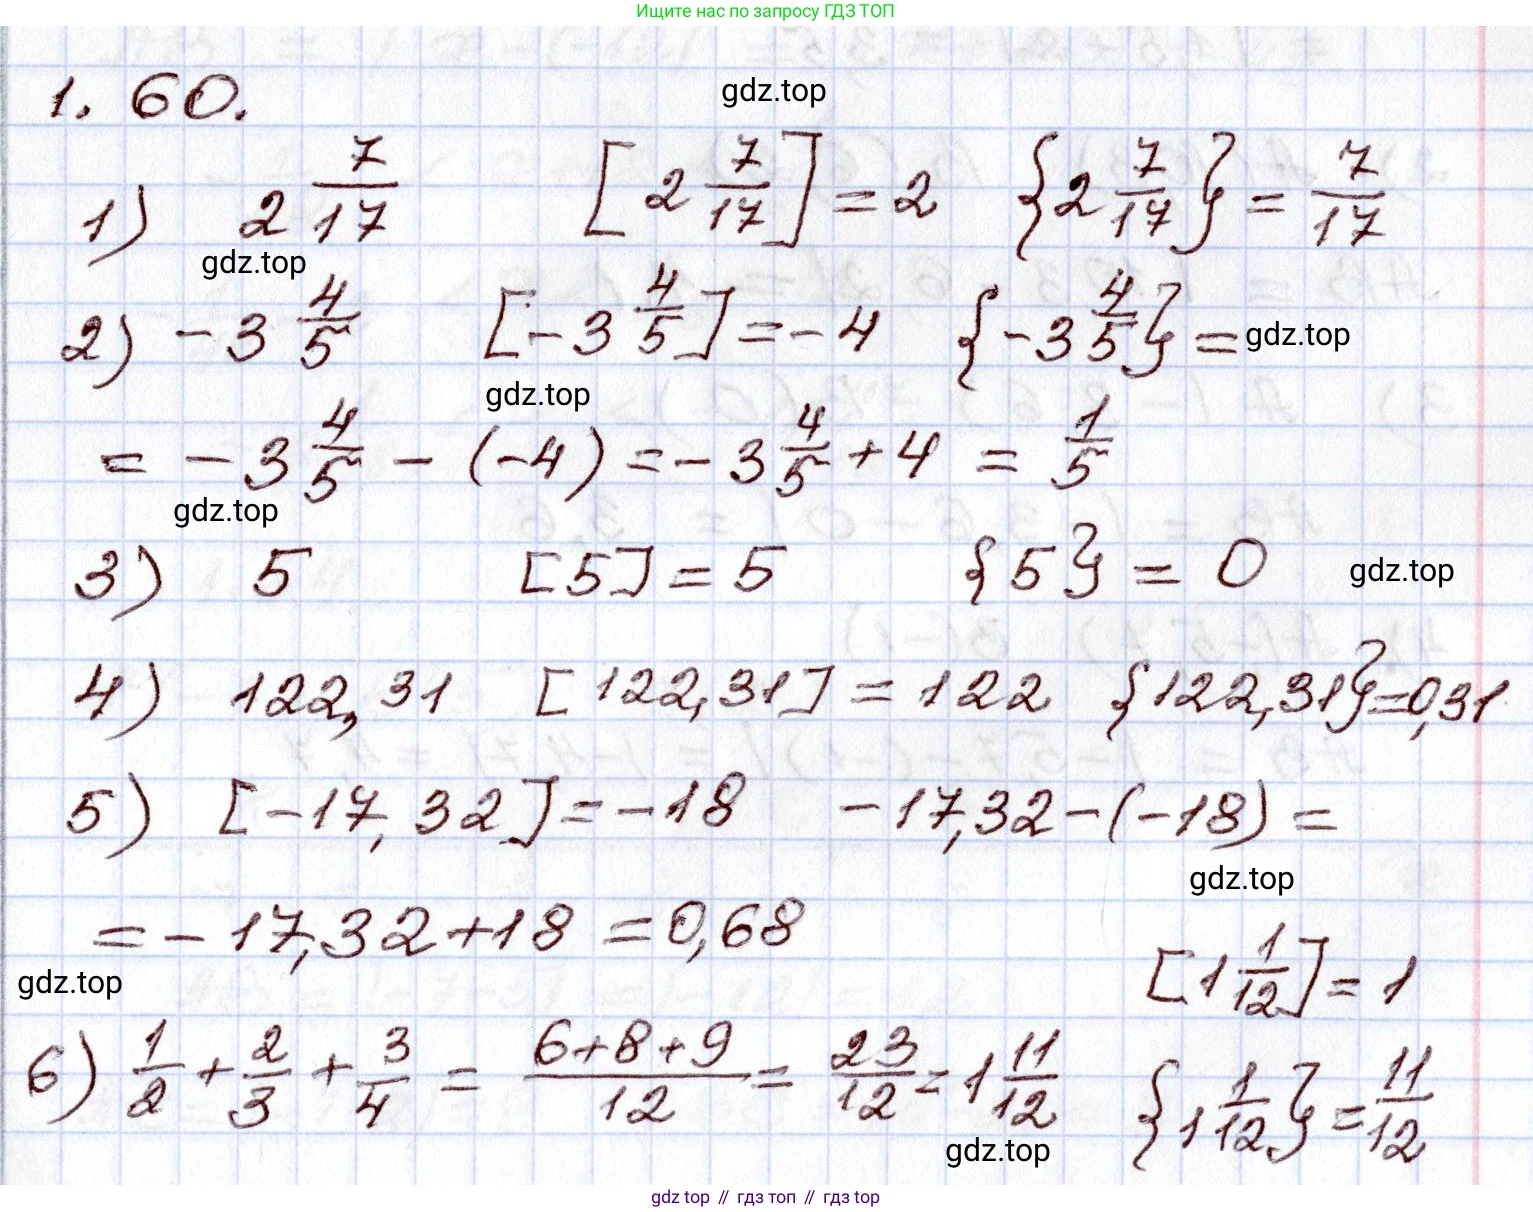 Ищите нас по запросу ГДЗ ТОП
1. 60.
gdz.top
1) 2 7/17 [2 7/17] = 2 {2 7/17} = 7/17
gdz.top
2) -3 4/5 [-3 4/5] = -4 {-3 4/5} = gdz.top
gdz.top
= -3 4/5 - (-4) = -3 4/5 + 4 = 1/5
gdz.top
3) 5 [5] = 5 {5} = 0 gdz.top
4) 122,31 [122,31] = 122 {122,31} = 0,31
5) [-17,32] = -18 -17,32 - (-18) =
gdz.top
= -17,32 + 18 = 0,68
gdz.top
[1 1/12] = 1
6) 1/2 + 2/3 + 3/4 = (6+8+9)/12 = 23/12 = 1 11/12 {1 1/12} = 11/12
gdz.top
gdz top // гдз топ // гдз top